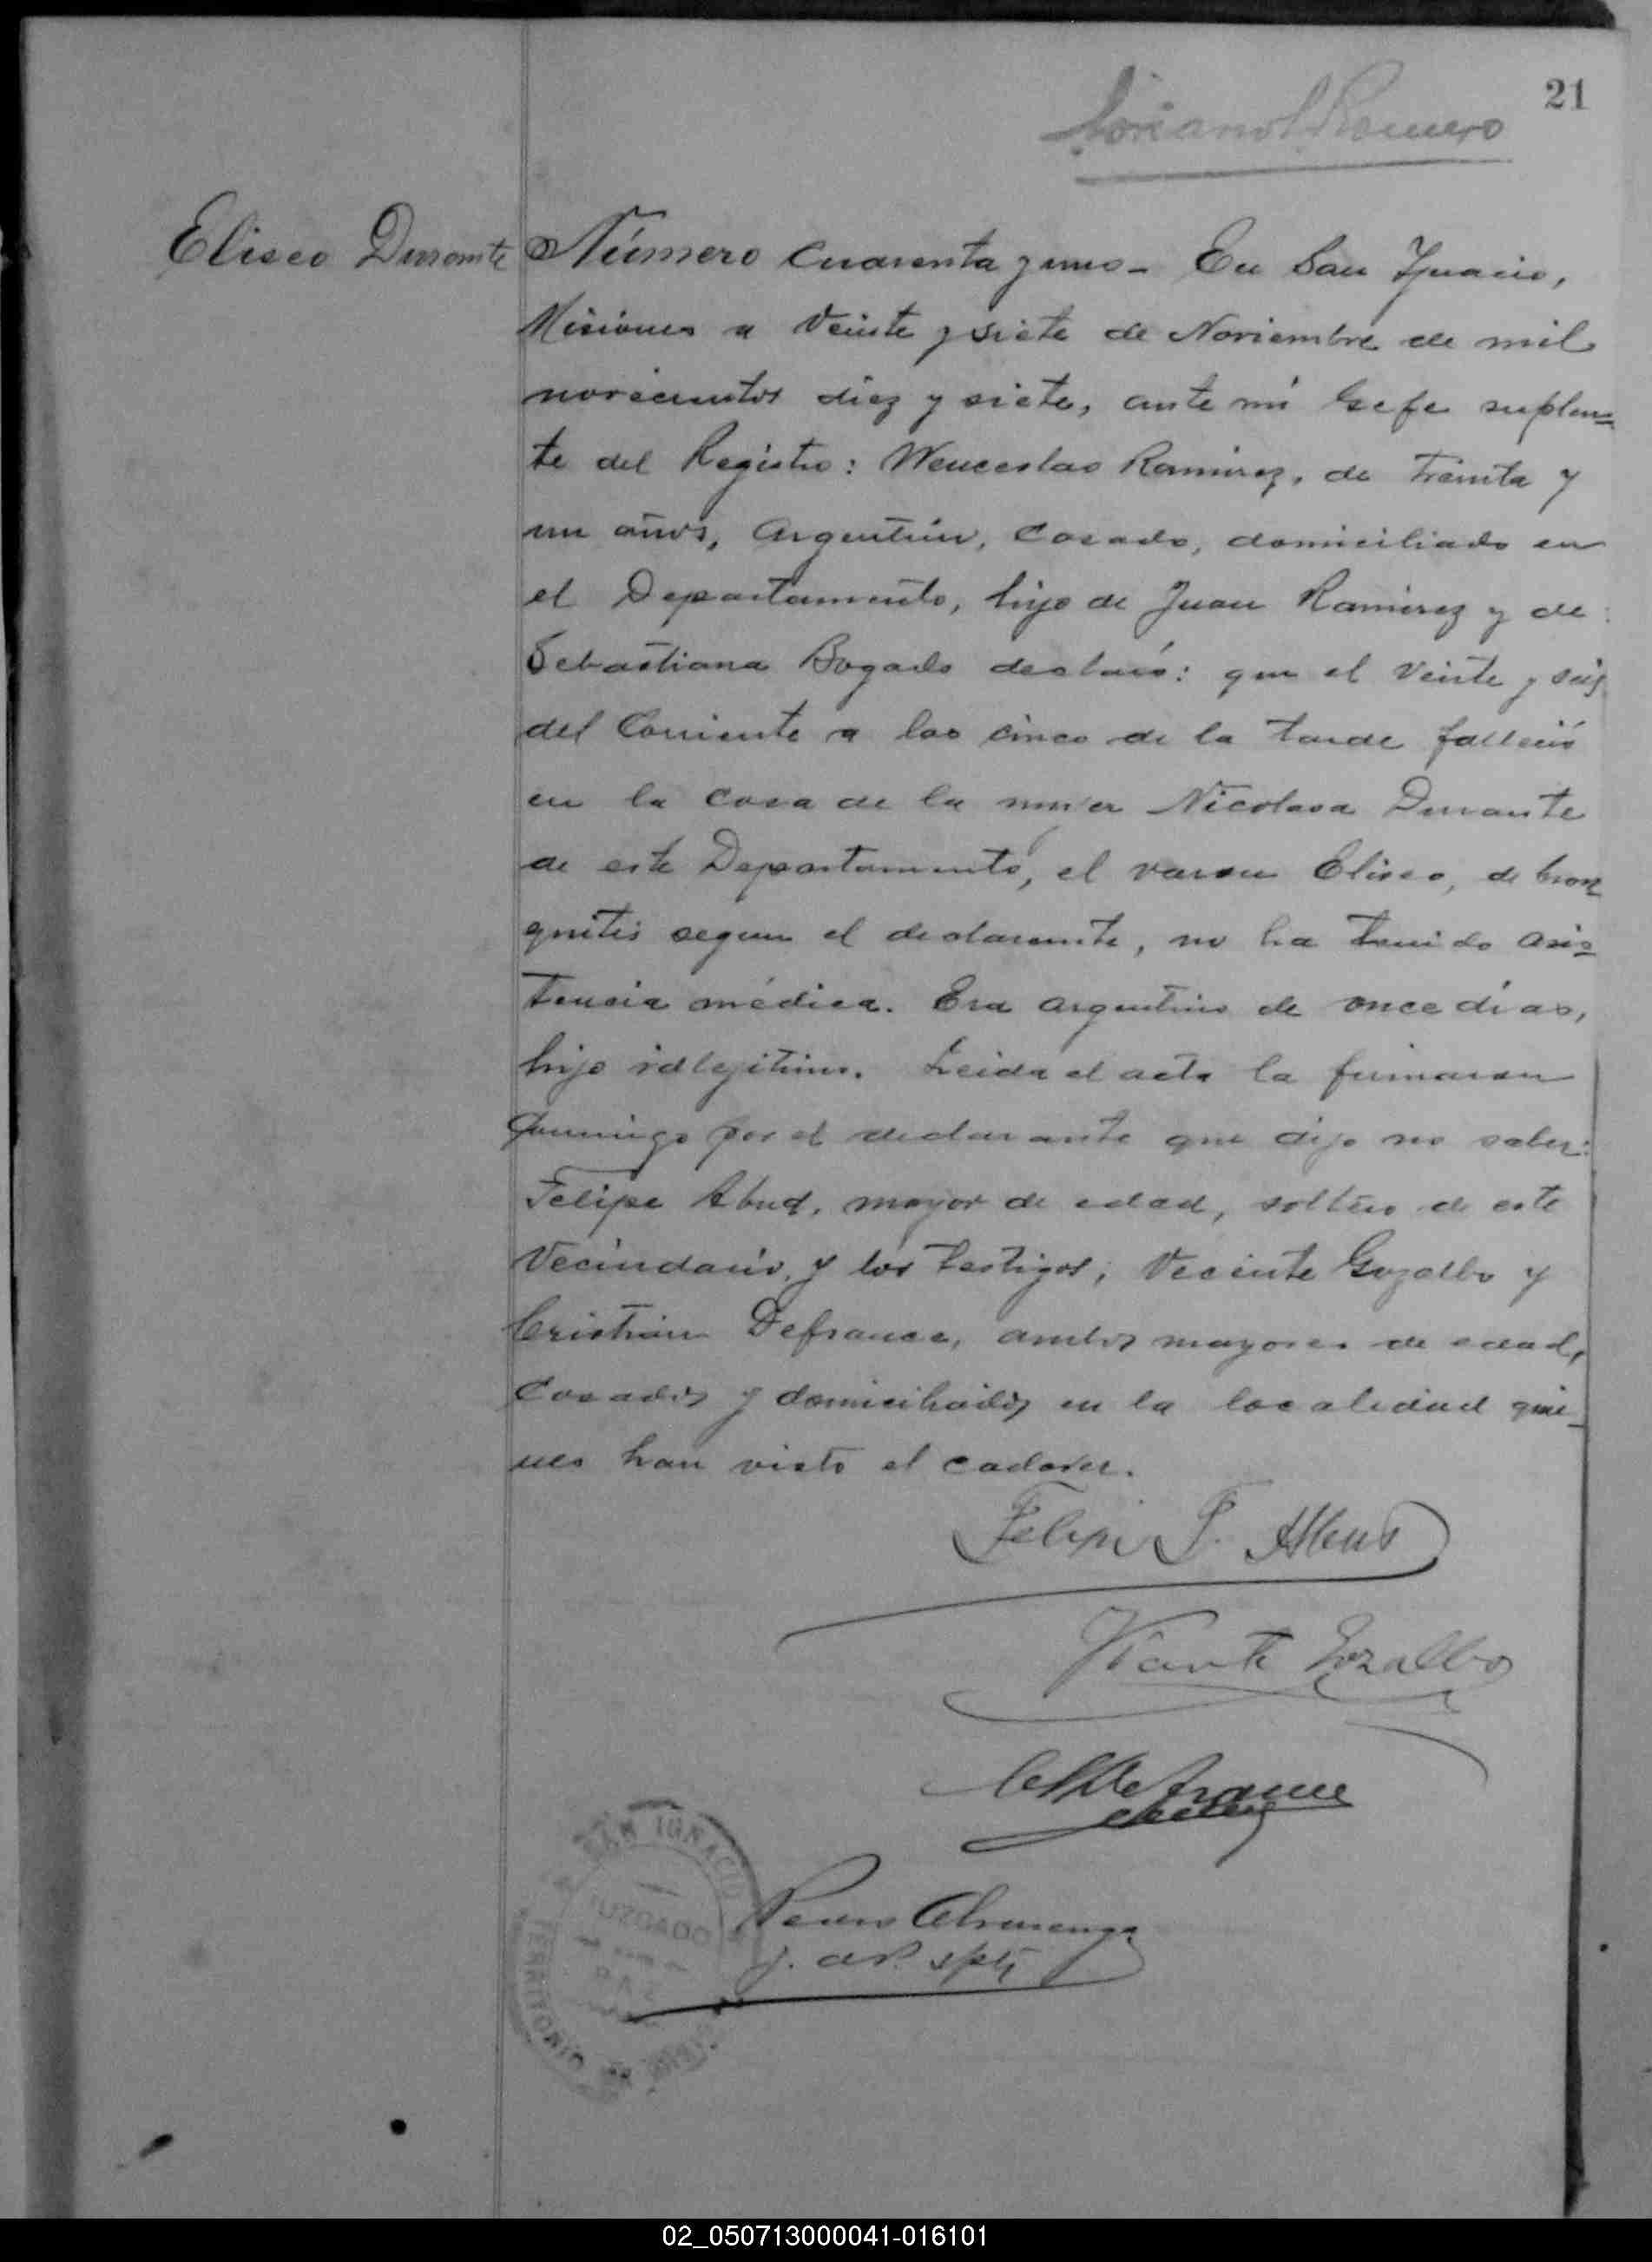 21
Romero
Eliseo Durante
Número cuarenta y uno - En San Ignacio,
Misiones a Veinte y siete de Noviembre de mil
novecientos diez y siete, ante mi Gefe suplen=
te del Registro: Wenceslao Ramirez, de treinta y
un años, Argentino, casado, domiciliado en
el Departamento, hijo de Juan Ramirez y de
Sebastiana Bogado declaró: que el veinte y seis
del Corriente a las cinco de la tarde falleció
en la casa de la mujer Nicolasa Durante
de este Departamento, el varon Eliseo, de bron
quitis segun el declarante, no ha tenido asis=
tencia médica. Era argentino de once dias,
hijo ilegitimo. Leida el acta la firmaron
conmigo por el declarante que dijo no saber:
Felipe Abud, mayor de edad, soltero de este
Vecindario, y los testigos, Vecente Gozalbo y
Cristian Defrance, ambos mayores de edad,
Casados y domiciliados en la localidad quie_
nes han visto el cadaver.
Felipe F. Abud
Vicente Gozalbo
Defrance
Pedro
J. de P. spte
SAN IGNACIO
JUZGADO
DE
PAZ
TERRITORIO DE
02_050713000041-016101